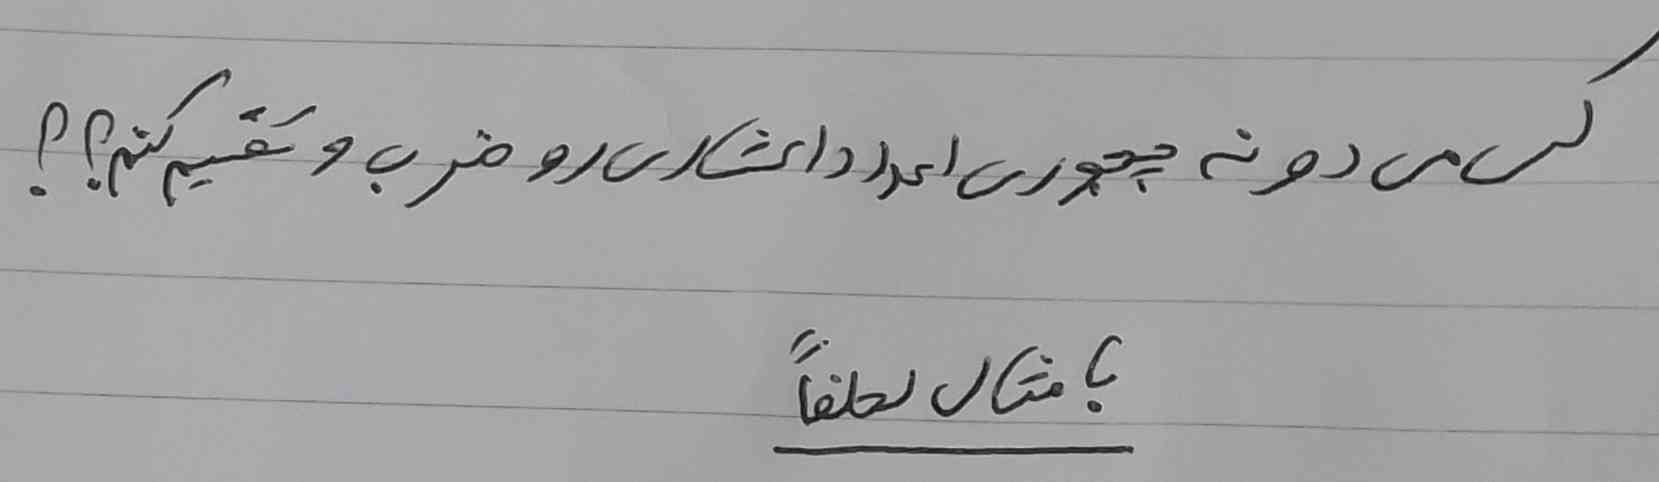 کسی می دونه چجوری اعداد اعشاری رو ضرب و تقسیم کنم؟؟
با مثال لطفاً